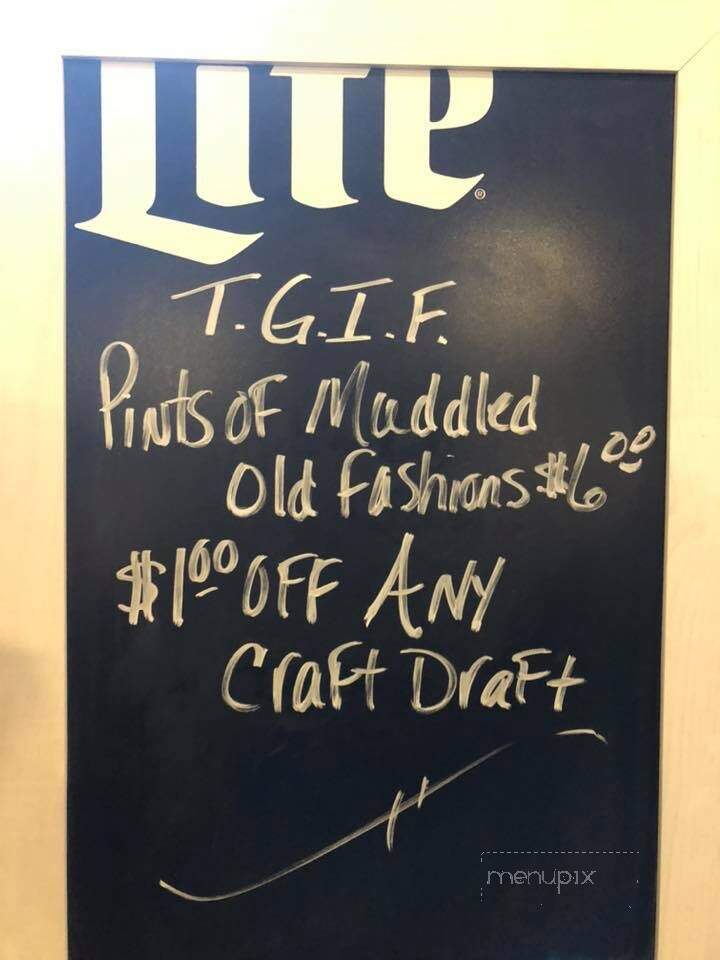 Lite®
T.G.I.F.
Pints of Muddled
Old Fashions $6.00
$1.00 OFF ANY
Craft Draft
menupix